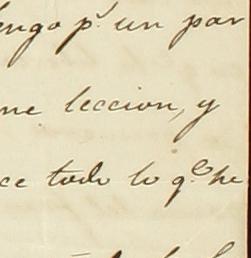 engo p.r un par
ne leccion, y
ce todo lo q.e he